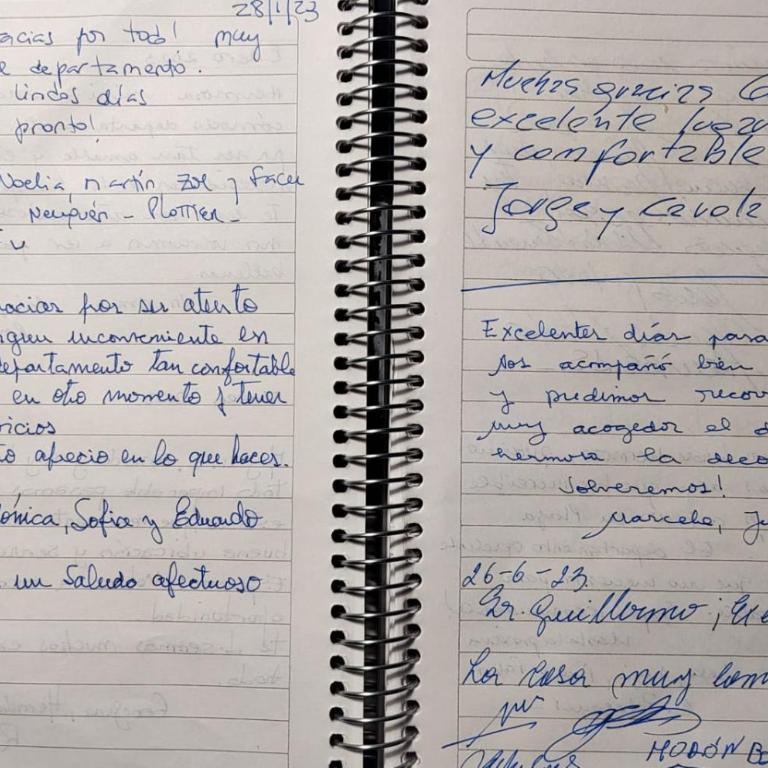 28/1/23
acias por todo! muy
e departamento.
lindos días
pronto!
Noelia, martín Zoe y Facu
Neuquén - Plottier -
acias por su atento
ngun inconveniente en
departamento tan confortable
en otro momento y tener
icios
o aprecio en lo que haces.
ónica, Sofia y Eduardo
un Saludo afectuoso
Muchas gracias
excelente lugar
y comfortable
Jorge y Carola
Excelentes días para
nos acompañó bien
y pudimos recor
muy acogedor el d
hermosa la deco
Volveremos!
Marcela, Ju
26-6-23.
Sr. Guillermo;
La casa muy com